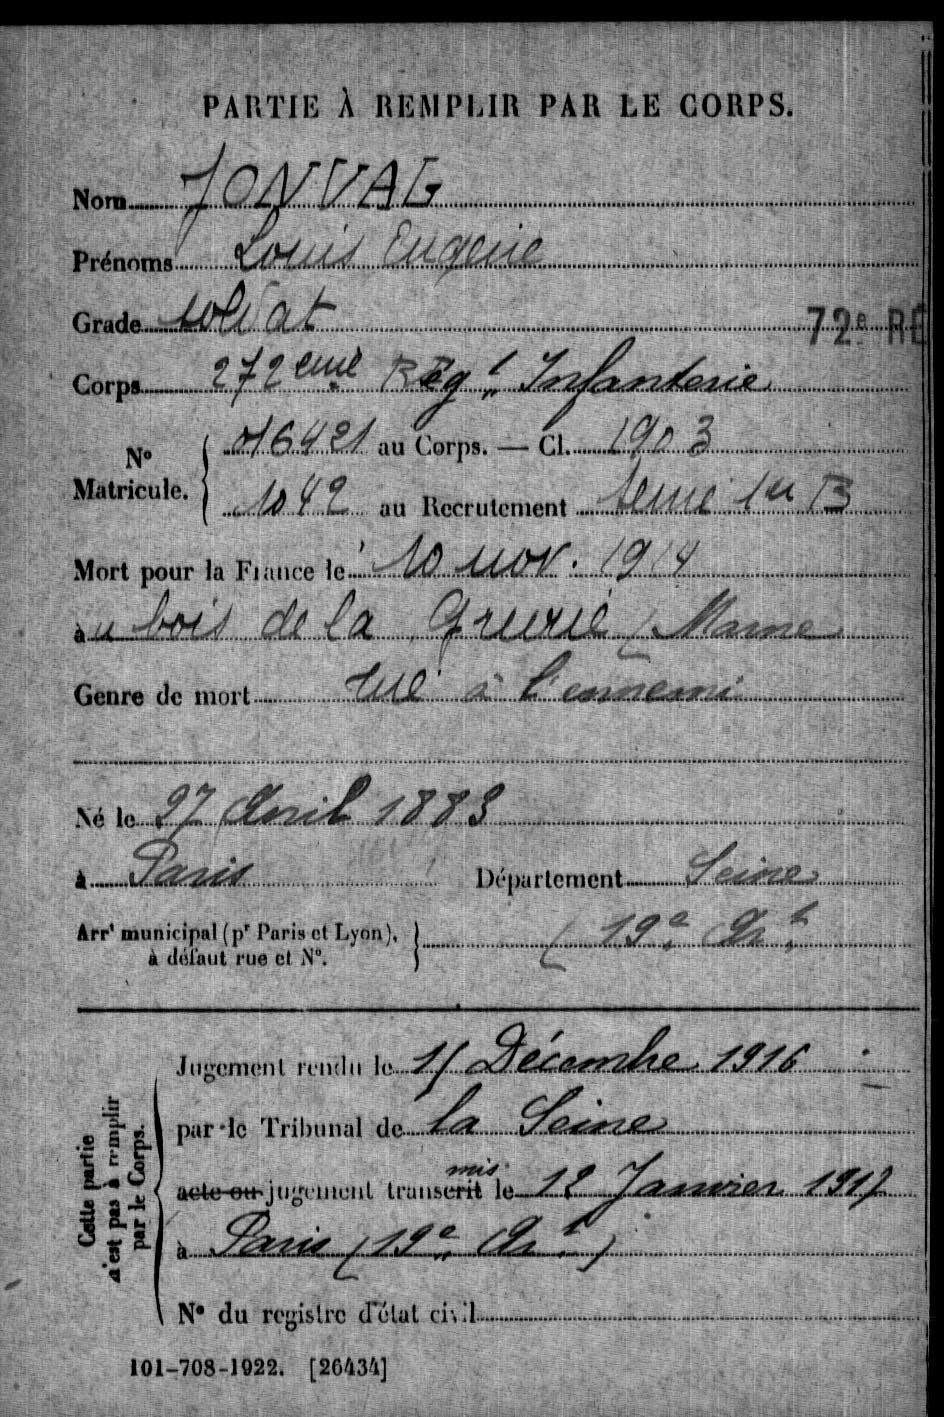 PARTIE À REMPLIR PAR LE CORPS.
Nom JONVAL
Prénoms Louis Eugène
Grade soldat
72e RÉ
Corps 272ème Régt Infanterie
No Matricule. 016421 au Corps. — Cl. 1903
1042 au Recrutement Seine 1er B
Mort pour la France le 10 nov. 1914
au bois de la Grurie (Marne
Genre de mort tué à l'ennemi
Né le 27 Avril 1883
à Paris Département Seine
Arrt municipal (pr Paris et Lyon), à défaut rue et No. (19e Art
Cette partie n'est pas à remplir par le Corps.
Jugement rendu le 15 Décembre 1916
par le Tribunal de la Seine
acte ou jugement transcrit mis le 12 Janvier 1917
à Paris (19e Art)
No du registre d'état civil
101-708-1922. [26434]